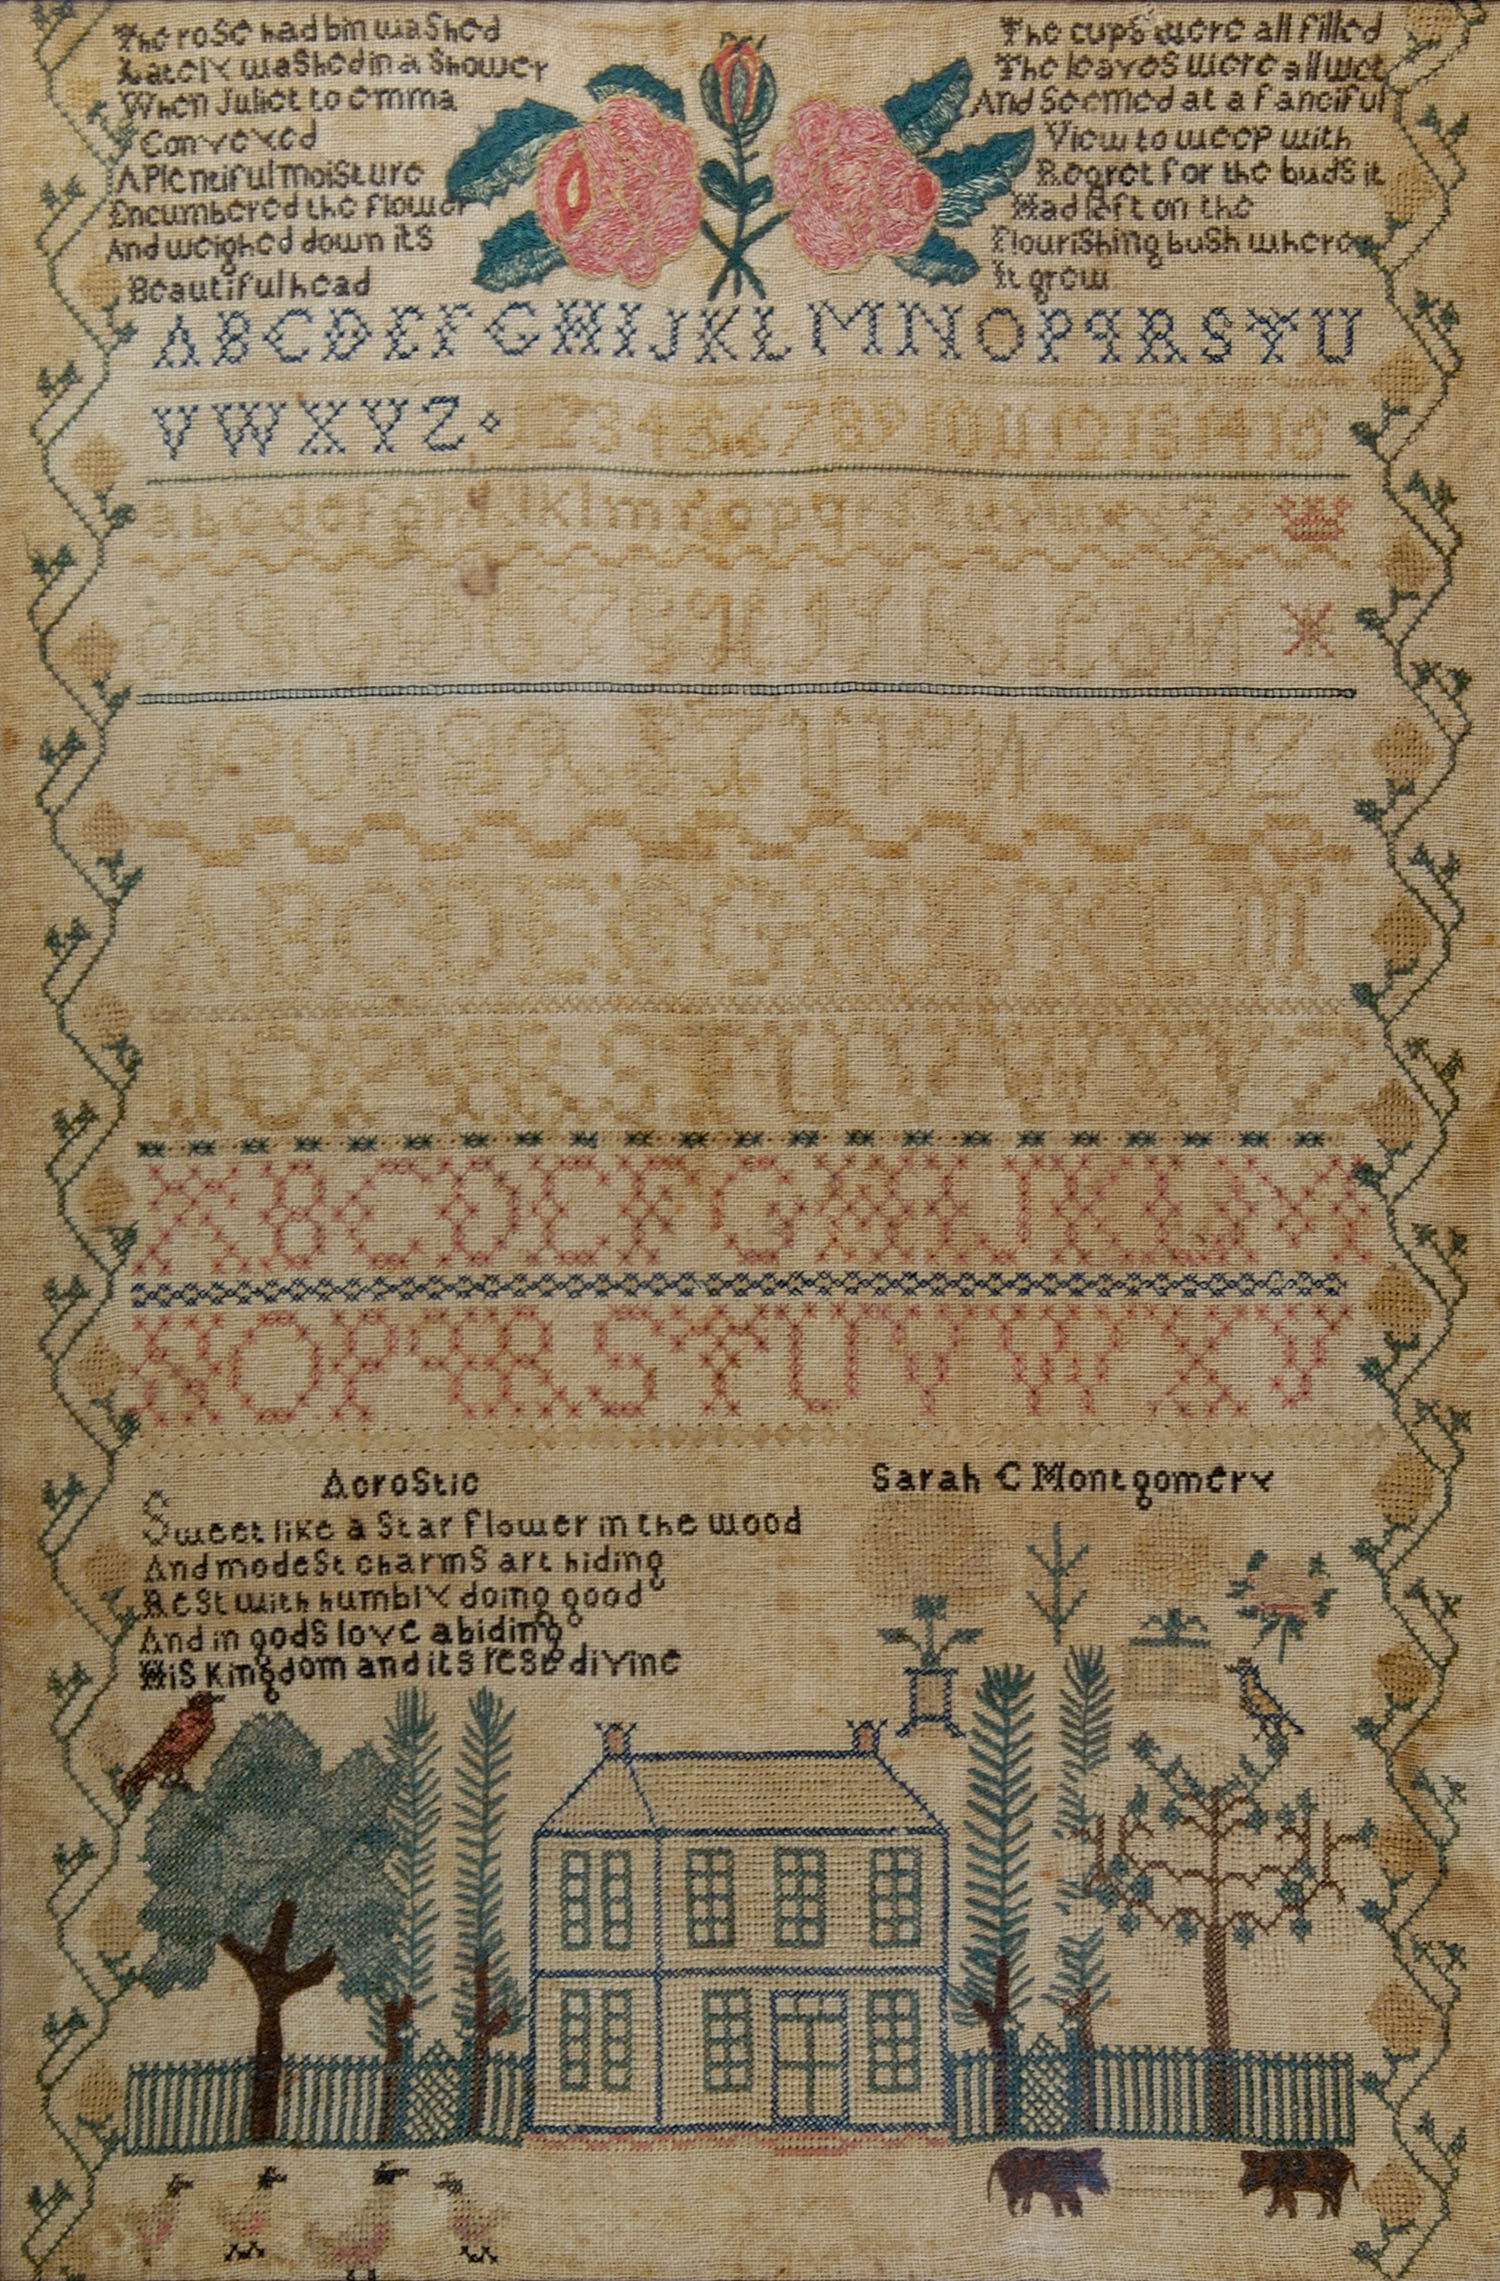 The rose had bin washed
Lately washed in a shower
When Juliet to emma
Conveyed
A Plentiful moisture
Encumbered the flower
And weighed down its
Beautiful head
The cups were all filled
The leaves were all wet
And Seemed at a fanciful
View to weep with
Regret for the buds it
Had left on the
Flourishing bush where
It grew
A B C D E F G H I J K L M N O P q R S T U
V W X Y Z 1 2 3 4 5 6 7 8 9 10 11 12 13 14 15
a b c d e f g h i j k l m n o p q r s t u v w x y z
A B C D E F G H I K L M
N O P Q R S T U V W X Y Z
A B C D E F G H I J K L M
N O P q R S T U V W X Y
Acrostic
Sweet like a Star flower in the wood
And modest charms art hiding
Rest with humbly doing good
And in gods love abiding
His Kingdom and its rest divine
Sarah C Montgomery